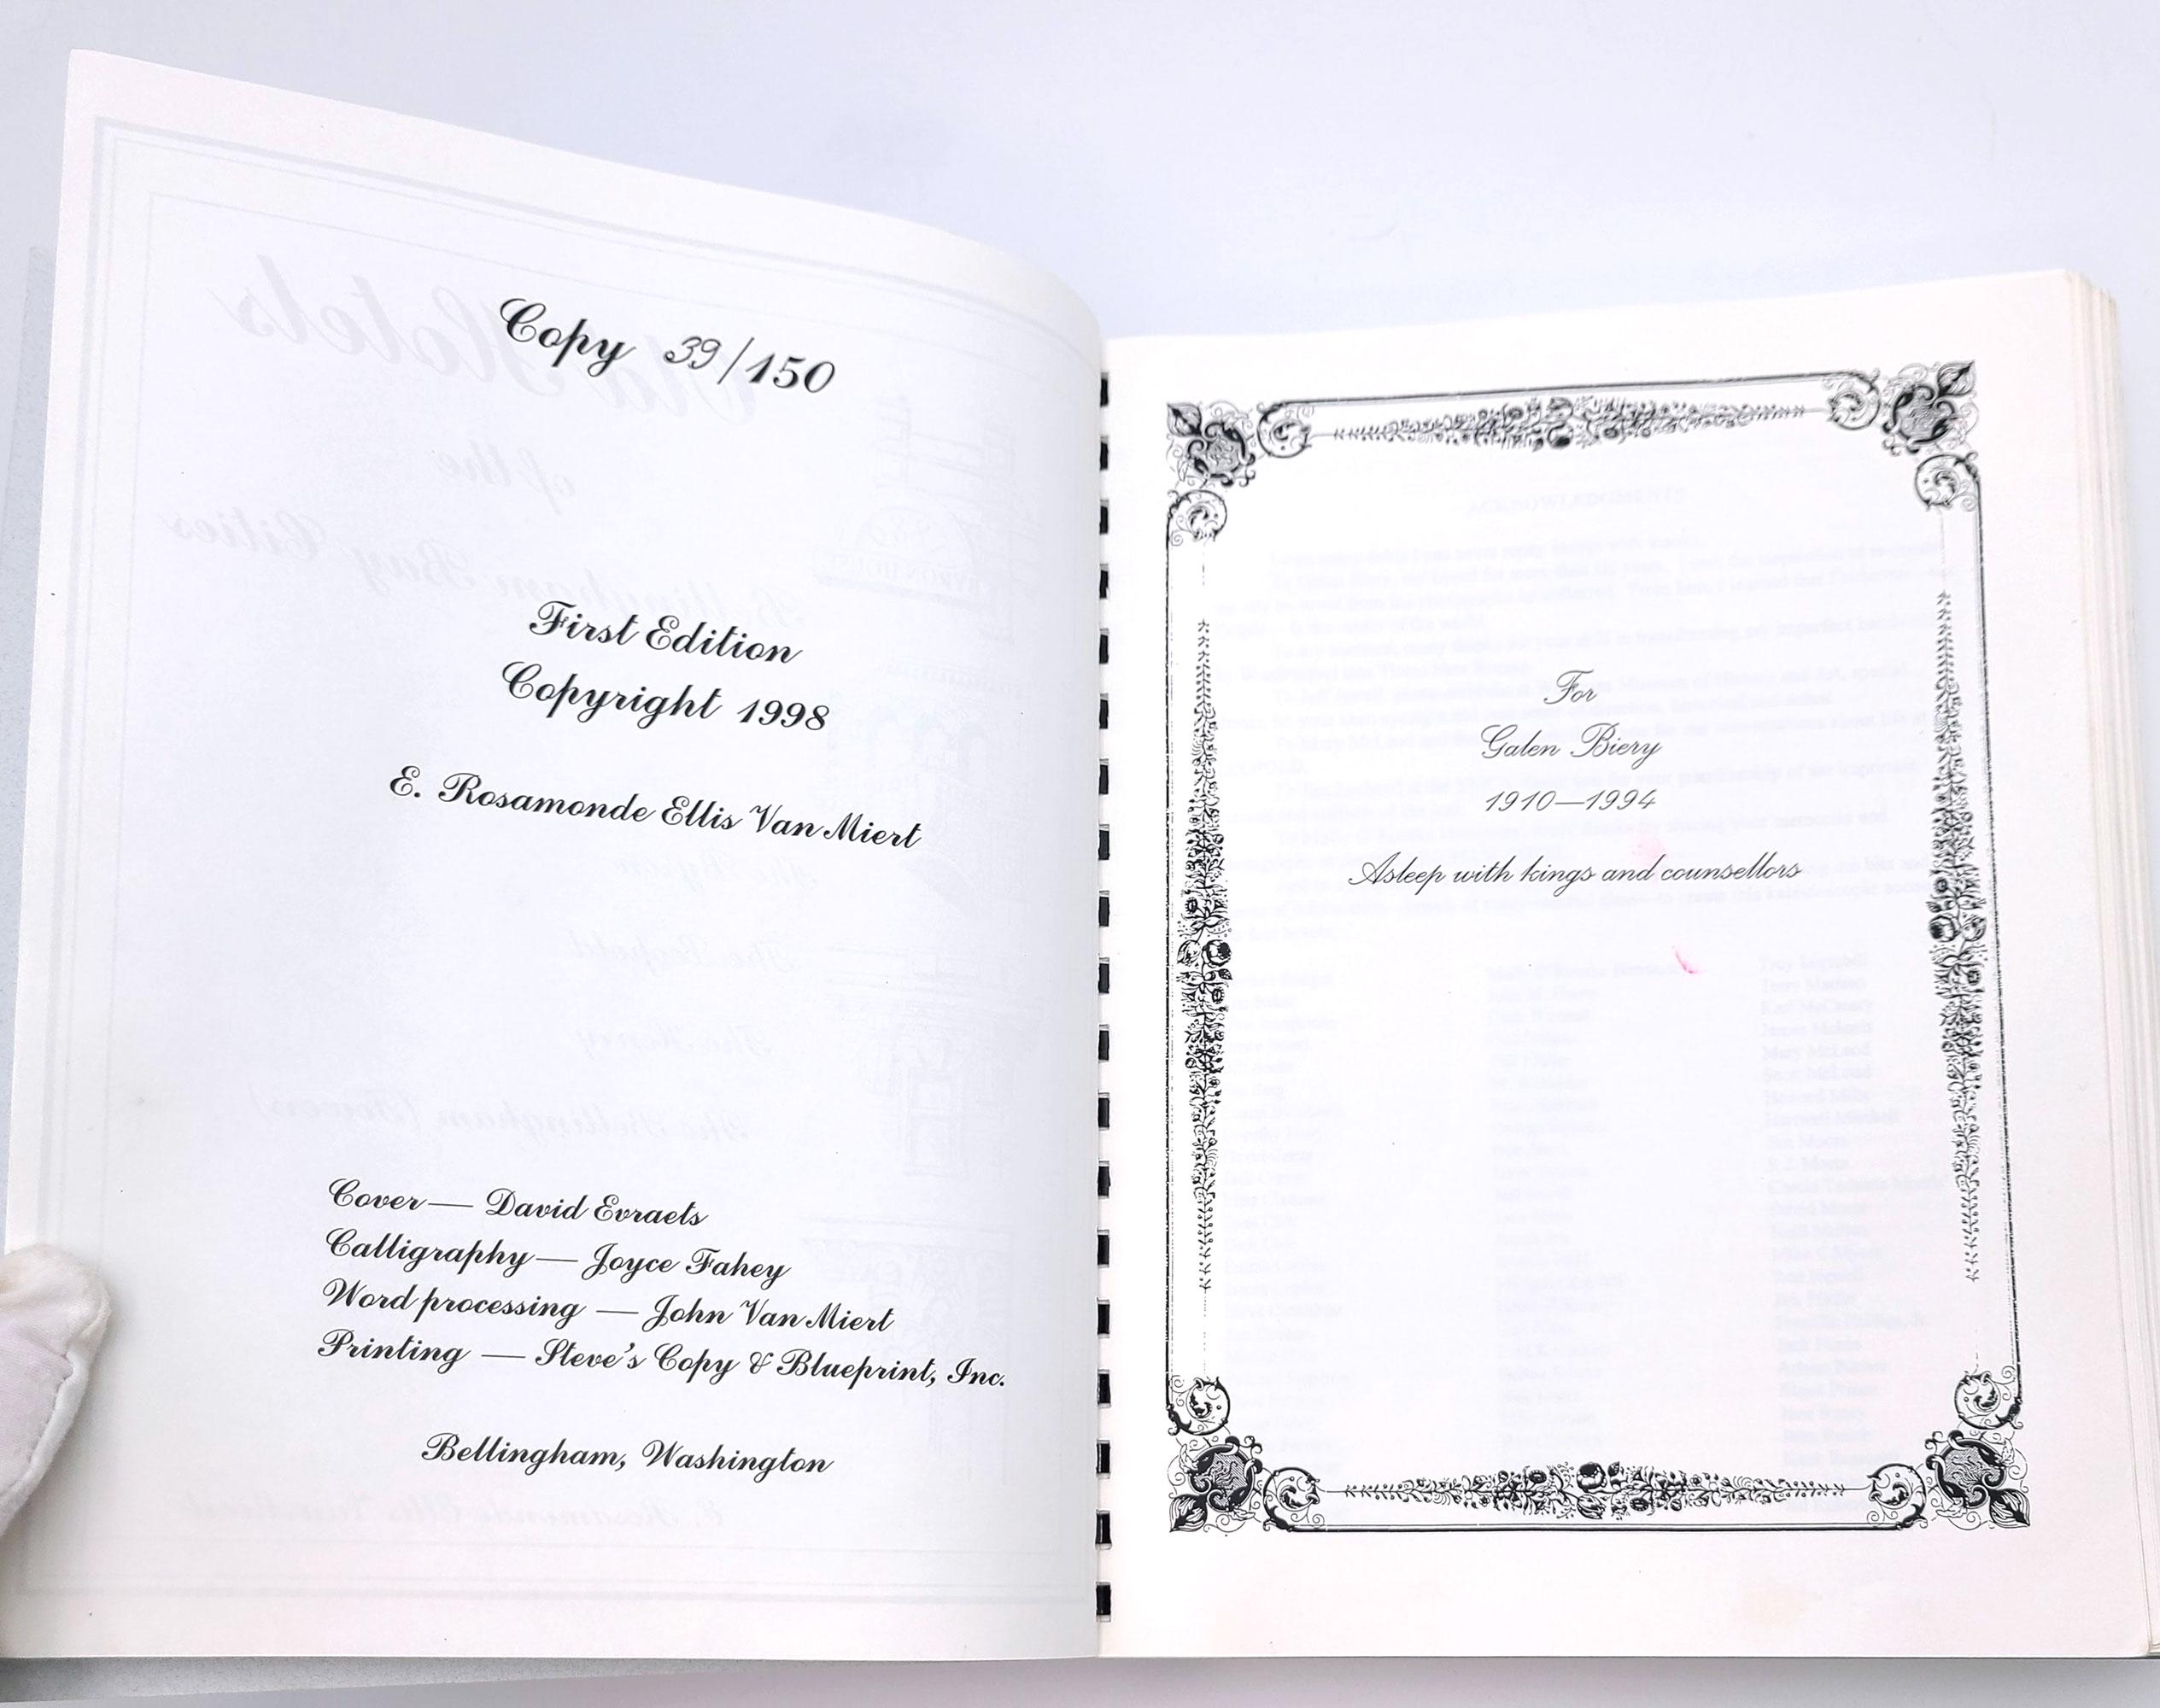 Copy 39/150
First Edition
Copyright 1998
E. Rosamonde Ellis Van Miert
Cover — David Evraets
Calligraphy — Joyce Fahey
Word processing — John Van Miert
Printing — Steve's Copy & Blueprint, Inc.
Bellingham, Washington
For
Galen Biery
1910—1994
Asleep with kings and counsellors